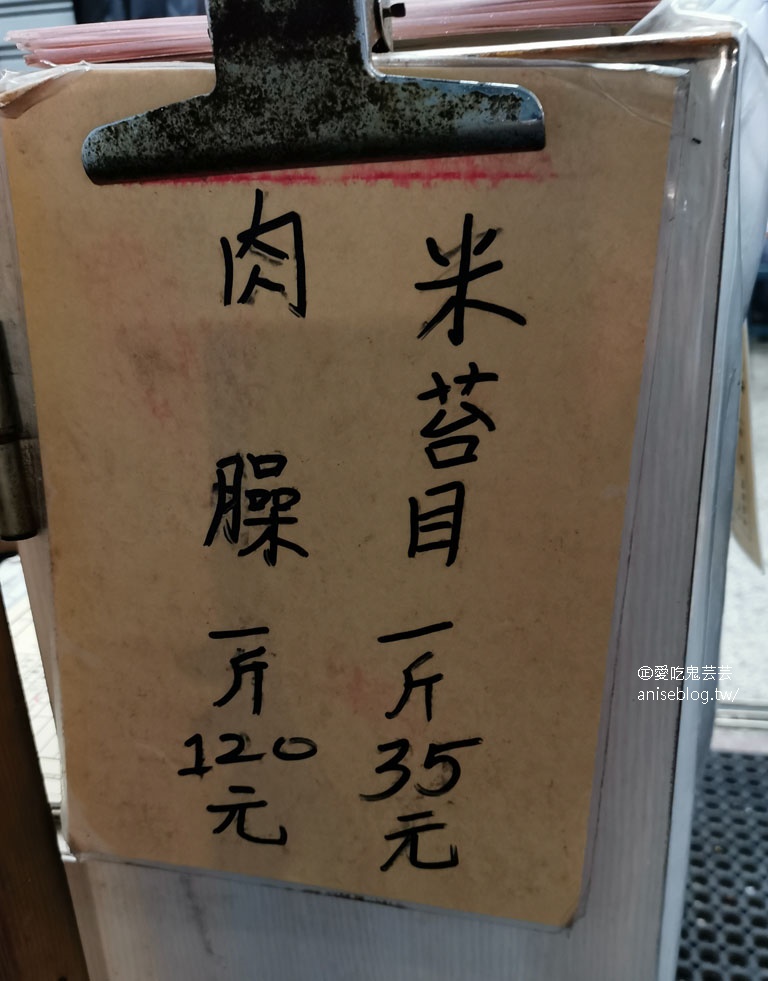 米苔目一斤35元
肉臊一斤120元
㊣愛吃鬼芸芸
aniseblog.tw/